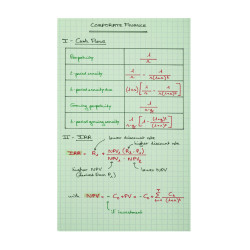 CORPORATE FINANCE
I - Cash Flows
Perpetuity 1/r
t-period annuity 1/r - 1/r(1+r)^t
t-period annuity due (1+r) [1/r - 1/r(1+r)^t]
Growing perpetuity 1/r-g
t-period growing annuity 1/r-g [1 - (1+g)^t/(1+r)^t]
II - IRR
lower discount rate
higher discount rate
IRR =
higher NPV
lower NPV
with NPV = - C₀ + PV = - C₀ +
if investment